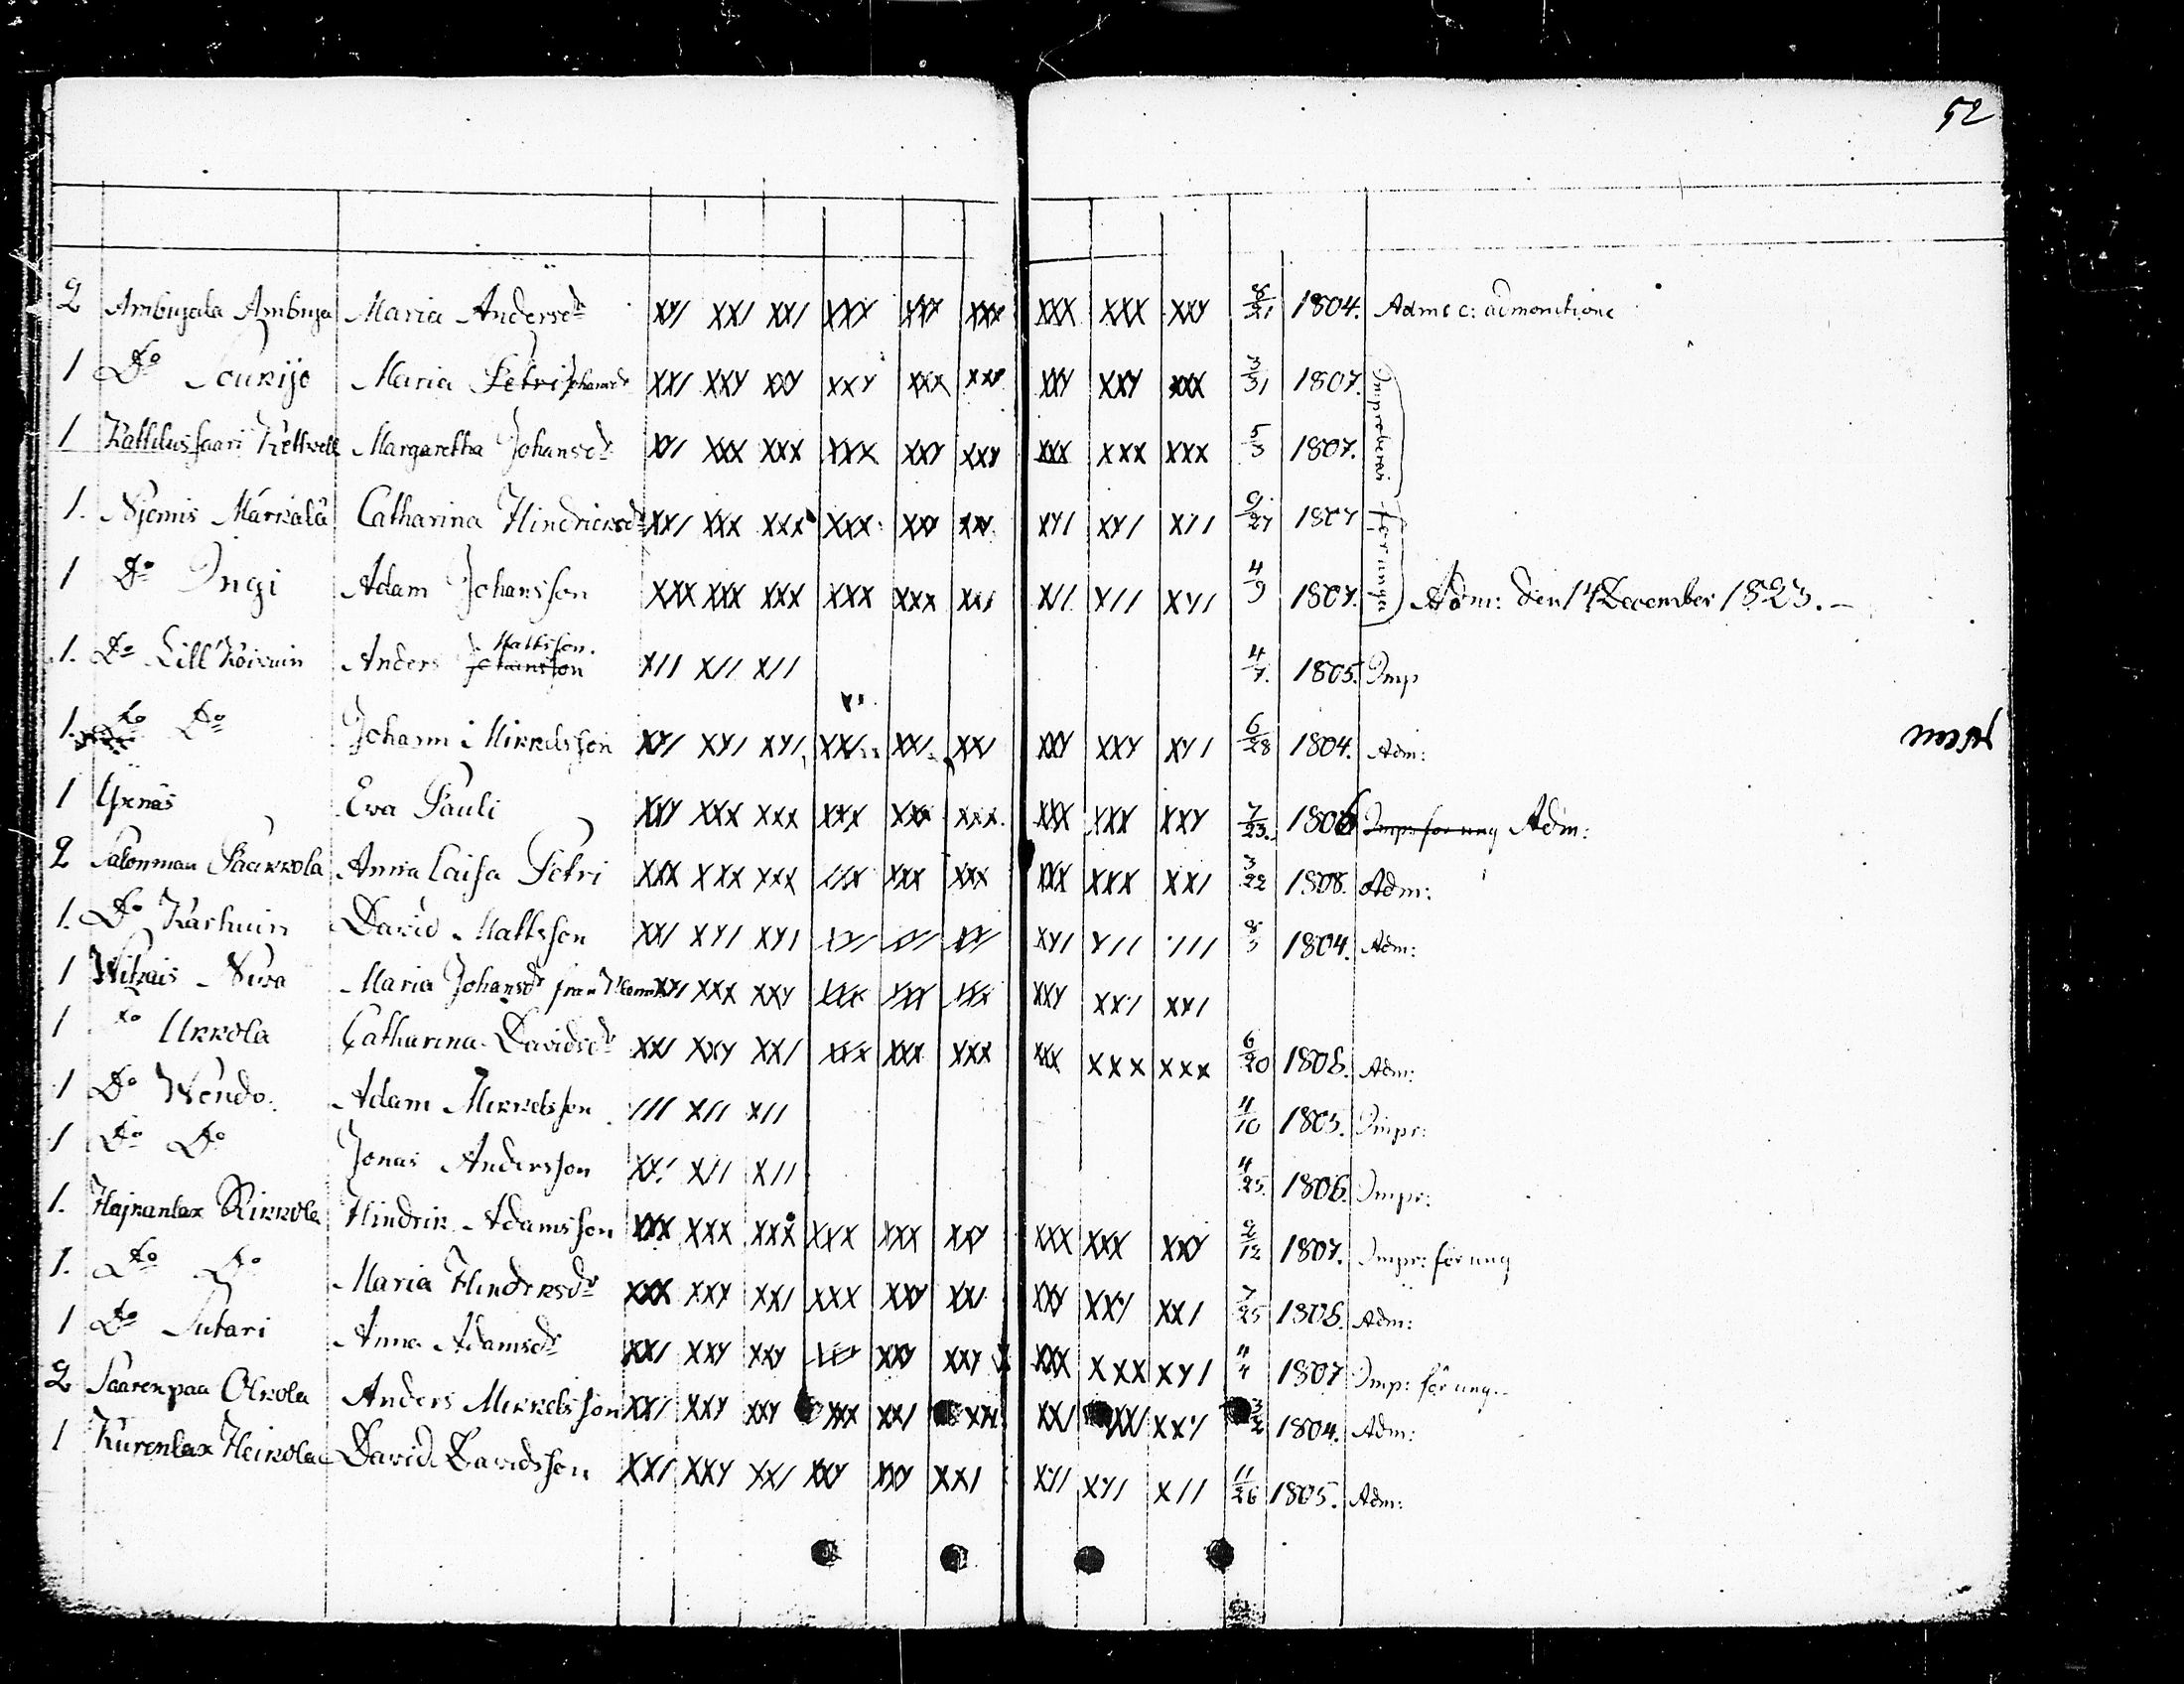 52
2 Ambuyala Ambuja Maria Andersdr XX/ XX/ XX/ XXX XXX XXX XXX XXX XXY 8/21 1804. Adm: c: admonitione
1 Do Maria Petri Johansdr XX/ XXY XXY XXY XXX XXY XXY XXY XXX 3/31 1807.
1 Margaretha Johansdr XX/ XXX XXX XXX XXY XXY XXX XXX XXX 5/3 1807.
1. Njemis Märkälä Catharina Hindricksdr XX/ XXX XXX XXX XXY XXY XY/ XY/ X// 9/27 1807
Improberas för unga
1 Do Ingi Adam Johansson XXX XXX XXX XXX XXX XX/ X// X// XY/ 4/9 1807. Adm: den 14 December 1823. –
1. Do Lill Koivuin Anders Johansson Mattsson. X// X// X// 4/7. 1805. Imp
1. Do Do Johann Mikkelsson XY/ XY/ XY/ XX/ XX/ XX/ XXY XXY XY/ 6/28 1804. Adm:
1 Yxnäs Eva Pauli XXY XXX XXX XXX XXX XXX XXX XXX XXY 7/23. 1806 Imp: for ung Adm:
2 Salonmaa Paakkola Anna Caisa Petri XXX XXX XXX XXX XXX XXX XXX XXX XX/ 3/22 1808. Adm:
1. Do Karhuin David Mattsson XX/ XY/ XY/ XY/ Y// /// 8/3 1804. Adm:
1 Wilkais Niva Maria Johansdr från XX/ XXX XXY XXX XXX XXX XXY XX/ XY/
1 Do Ukkola Catharina Davidsdr XX/ XXY XX/ XXX XXX XXX XXX XXX XXX 6/20 1806. Adm:
1 Do Wendo. Adam Mikkelsson /// X// X// 11/10 1805. Impr:
1 Do Do Jonas Andersson XX/ X// X// 11/25. 1806. Impr:
1. Hajkanlax Rikkola Hindrik Adamsson XXX XXX XXX XXX XXX XXY XXX XXX XXY 2/12 1807. Impr: för ung
1. Do Do Maria Hindriksdr XXX XXY XX/ XXX XXY XX/ XXY XX/ XX/ 7/25 1806. Adm:
1 Do Sutari Anna Adamsdr XX/ XXY XXY XXY XXY XXX XXX XY/ 11/4 1807 Imp: för ung.
2 Saarenpaa Olkola Anders Mikkelsson XX/ XXY XXY XXX XX/ XX/ XX/ XX/ XX/ 3/2 1804. Adm:
1 Kurenlax Heikola David Davidsson XX/ XXY XX/ XXY XXY XX/ XY/ XY/ X// 11/26 1805. Adm: